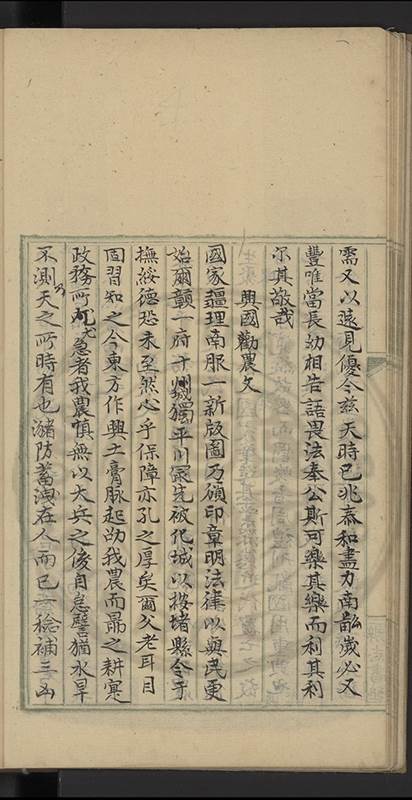 需又以遠見優今兹天時已兆泰和盡力南畝歲必又
豐唯當長幼相告語畏法奉公斯可樂其樂而利其利
尔其敬哉
興國勸農文
國家疆理南服一新版圖乃頒印章明法律以與民更
始爾贛一府十州縣獨平川最先被化城以按堵縣令于
撫綏德恐未至然心乎保障亦孔之厚矣爾父老耳目
固習知之今東方作興土膏脉起劭我農而勗之耕寔
政務所尤急者我農慎無以大兵之後自怠譬猶水旱
不測天之所時有也瀦防蓄洩在人而已一稔補三凶